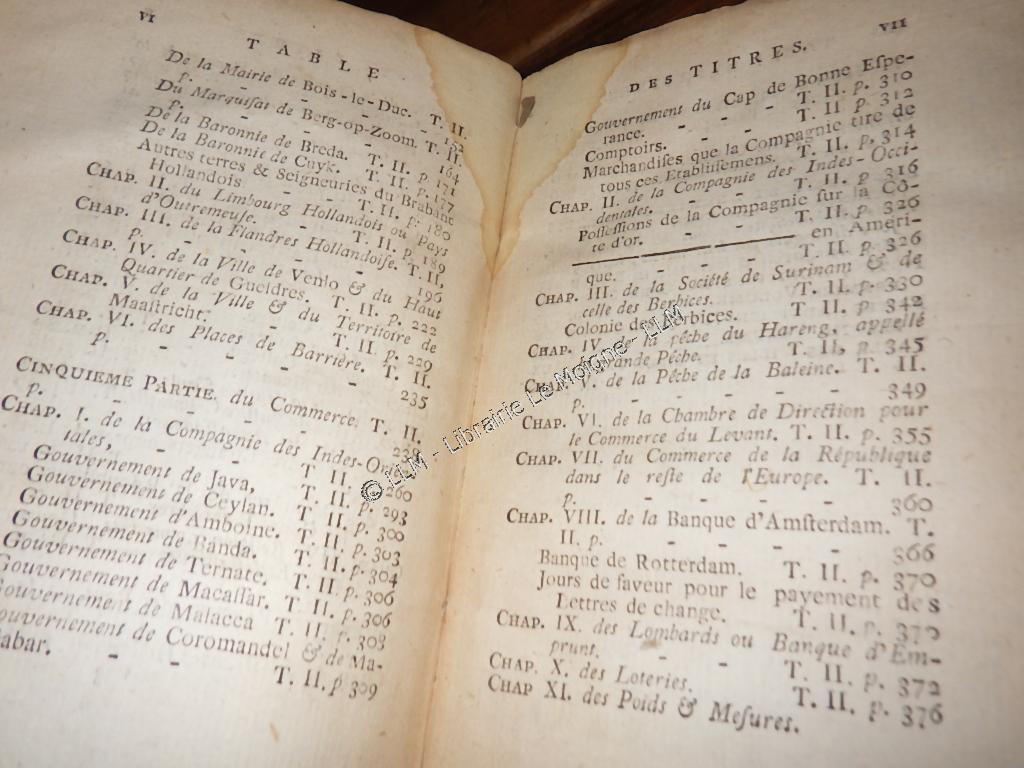 VI
TABLE
De la Mairie de Bois-le-Duc. T. II.
p. - - 152
Du Marquiſat de Berg-op-Zoom. T. II.
p. - - 164
De la Baronnie de Breda. T. II. p. 171
De la Baronnie de Cuyk. T. II. p. 177
Autres terres & Seigneuries du Brabant
Hollandois - T. II. p. 180
CHAP. II. du Limbourg Hollandois ou Pays
d'Outremeuſe. - T. II. p. 189
CHAP. III. de la Flandres Hollandoiſe. T. II.
p. - - 196
CHAP. IV. de la Ville de Venlo & du Haut
Quartier de Gueldres. T. II. p. 222
CHAP. V. de la Ville & du Territoire de
Maaſtricht. - T. II. p. 229
CHAP. VI. des Places de Barrière. T. II.
p. - - - - 235
CINQUIEME PARTIE. du Commerce. T. II.
p. - - - 239
CHAP. I. de la Compagnie des Indes-Orien-
tales, - - T. II. p. 260
Gouvernement de Java. T. II. p. 293
Gouvernement de Ceylan. T. II. p. 300
Gouvernement d'Amboine. T. II. p. 303
Gouvernement de Banda. T. II. p. 304
Gouvernement de Ternate. T. II. p. 306
Gouvernement de Macaſſar. T. II. p. 306
Gouvernement de Malacca T. II. p. 308
Gouvernement de Coromandel & de Ma-
labar. - - T. II. p 309
VII
DES TITRES.
Gouvernement du Cap de Bonne Eſpe-
rance. - - - T. II. p. 310
Comptoirs. - - T. II p. 312
Marchandiſes que la Compagnie tire de
tous ces Etabliſſemens. T. II. p. 314
CHAP. II. de la Compagnie des Indes-Occi-
dentales. - - T. II. p 316
Poſſeſſions de la Compagnie ſur la Cô-
te d'or. - - T. II. p. 326
en Améri-
que. - - - T. II. p. 326
CHAP. III. de la Société de Surinam & de
celle des Berbices. T. II. p. 330
Colonie des Berbices. T. II p. 342
CHAP. IV. de la pêche du Hareng, appellé
grande Pêche. T. II, p. 345
CHAP. V. de la Pêche de la Baleine. T. II.
p. - - - - - 349
CHAP. VI. de la Chambre de Direction pour
le Commerce du Levant. T. II. p. 355
CHAP. VII. du Commerce de la République
dans le reſte de l'Europe. T. II.
p. - - - - - 360
CHAP. VIII. de la Banque d'Amſterdam. T.
II. p. - - - - 366
Banque de Rotterdam. T. II. p. 370
Jours de faveur pour le payement des
Lettres de change. T. II. p. 370
CHAP. IX. des Lombards ou Banque d'Em-
prunt. - - - T. II. p. 372
CHAP. X. des Loteries. T. II. p. 376
CHAP XI. des Poids & Meſures.
© LLM - Librairie Le Moigne - LLM